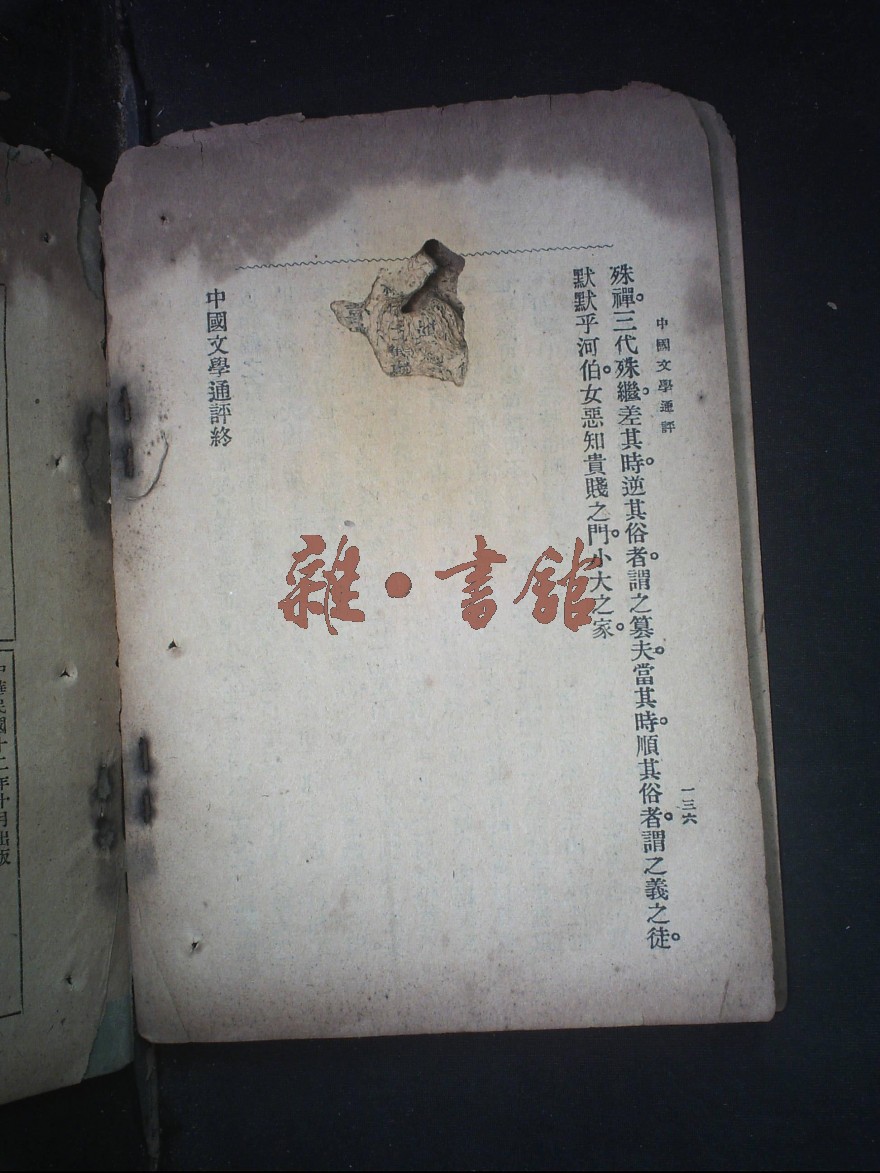 中國文學通評
一三六
殊禪。三代殊繼。差其時。逆其俗者。謂之篡夫。當其時。順其俗者。謂之義之徒。
默默乎河伯。女惡知貴賤之門。小大之家。
中國文學通評終
雜·書館
中華民國十二年十月出版